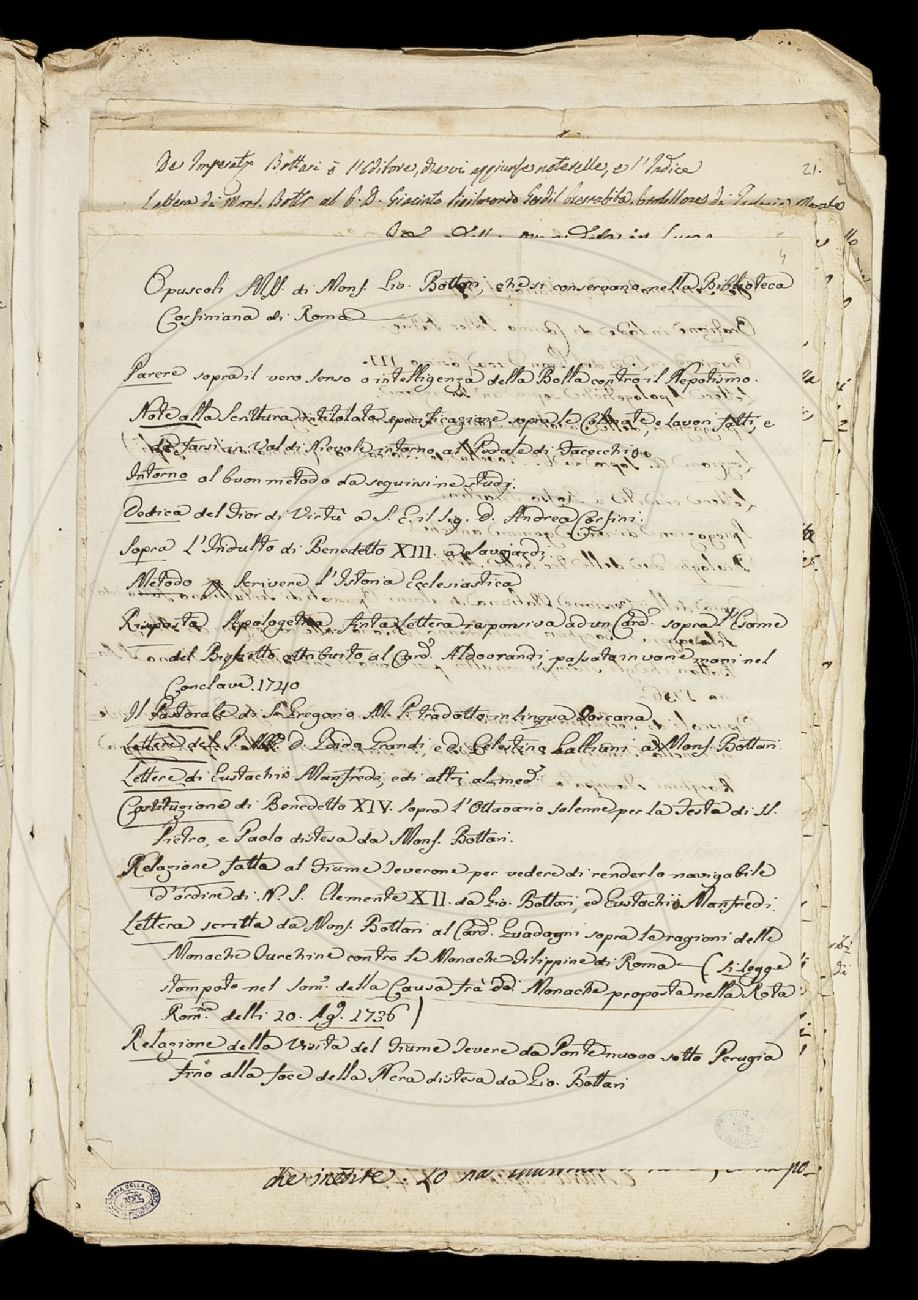 De Imperat. Bottari è l'Editore, che vi aggiunse noterelle, e l'Indice
21.
Lettera di Mons. Bott. al P. D. Giacinto
4
Opuscoli MSS. di Mons. Gio. Bottari, che si conservano nella Biblioteca
Corsiniana di Roma
Parere sopra il vero senso o intelligenza della Bolla contro il Nepotismo.
Note alla Scrittura intitolata specificazione sopra le Colmate, e lavori fatti, e
da farsi in Val di Nievole intorno al Padule di Fucecchio
Intorno al buon metodo da seguirsi ne studj.
Dedica del Fior di Virtù a S. E. il Sig. D. Andrea Corsini.
Sopra l'Indulto di Benedetto XIII. a Savojardi.
Metodo p scrivere l'Istoria Ecclesiastica
Risposta Apologetica, finta Lettera responsiva ad un Card. sopra l'Esame
del Biglietto attribuito al Card. Aldovrandi, passata in varie mani nel
Conclave 1740
Il Pastorale di S. Gregorio M. P. tradotto in lingua Toscana
Lettere del P. Abb. D. Guido Grandi, e di Celestino Galliani a Monsf. Bottari
Lettere di Eustachio Manfredi, e di altri al med.
Costituzione di Benedetto XIV. sopra l'Ottavario solenne per la Festa di SS.
Pietro, e Paolo distesa da Monsf. Bottari.
Relazione fatta al Fiume Teverone per vedere di renderlo navigabile
d'ordine di N. S. Clemente XII. da Gio. Bottari, ed Eustachio Manfredi.
Lettera scritta da Monsf. Bottari al Card. Guadagni sopra le ragioni delle
Monache Turchine contro le Monache Filippine di Roma (si legge
stampato nel Som. della Causa frà dd. Monache proposta nella Rota
Rom.na delli 20. Ag. 1736)
Relazione della Visita del Fiume Tevere da Ponte nuovo sotto Perugia
fino alla foce della Nera distesa da Gio. Bottari
che inedite. Io ne